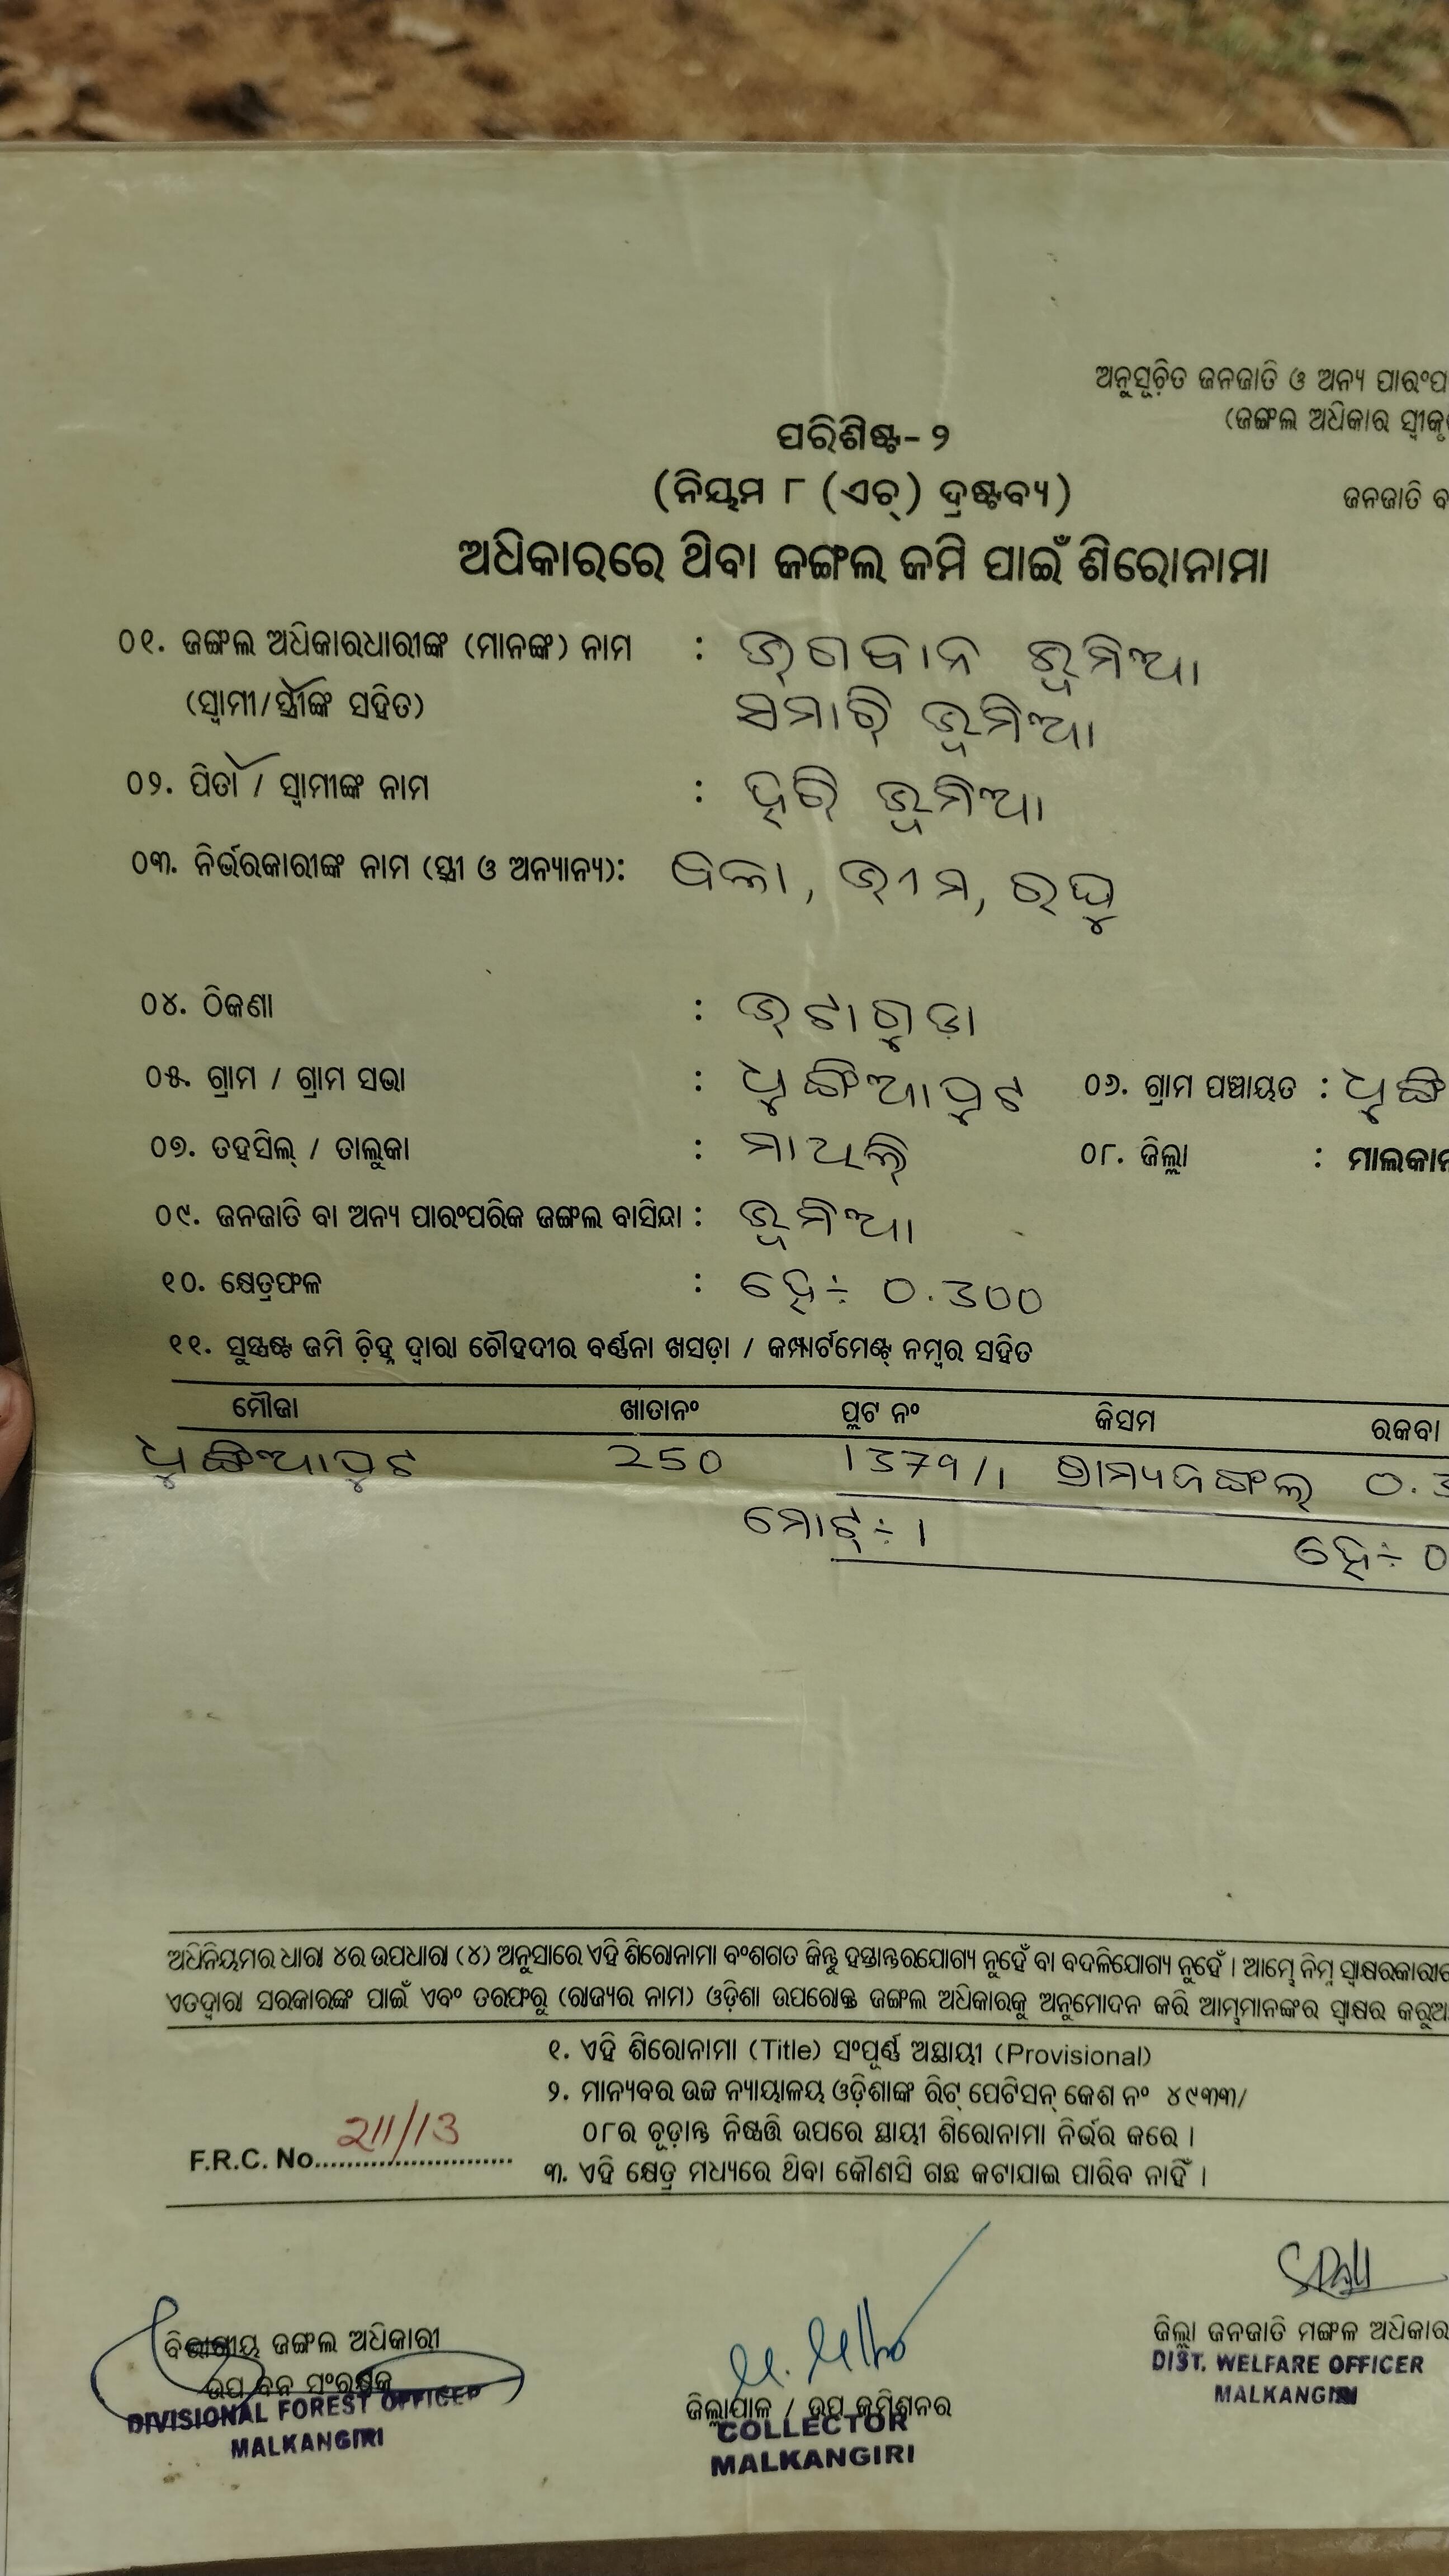 ଅନୁସୂଚିତ ଜନଜାତି ଓ ଅନ୍ୟ ପାରଂପ
(ଜଙ୍ଗଲ ଅଧିକାର ସ୍ୱୀକୃ
ପରିଶିଷ୍ଟ- ୨
(ନିୟମ ୮ (ଏଚ୍) ଦ୍ରଷ୍ଟବ୍ୟ)
ଜନଜାତି ବ
ଅଧିକାରରେ ଥିବା ଜଙ୍ଗଲ ଜମି ପାଇଁ ଶିରୋନାମା
୦୧. ଜଙ୍ଗଲ ଅଧିକାରଧାରୀଙ୍କ (ମାନଙ୍କ) ନାମ : ଭଗବାନ ଭୂମିଆ
(ସ୍ୱାମୀ/ସ୍ତ୍ରୀଙ୍କ ସହିତ) ସମାରି ଭୂମିଆ
୦୨. ପିତା / ସ୍ୱାମୀଙ୍କ ନାମ : ହରି ଭୂମିଆ
୦୩. ନିର୍ଭରକାରୀଙ୍କ ନାମ (ସ୍ତ୍ରୀ ଓ ଅନ୍ୟାନ୍ୟ): ବଳା, ଭୀମ, ରଘୁ
୦୪. ଠିକଣା : ଭଟାଗୁଡ଼ା
୦୫. ଗ୍ରାମ / ଗ୍ରାମ ସଭା : ଧୁଙ୍ଗିଆପୁଟ ୦୬. ଗ୍ରାମ ପଞ୍ଚାୟତ : ଧୁଙ୍ଗି
୦୭. ତହସିଲ୍ / ତାଲୁକା : ମାଥିଲି ୦୮. ଜିଲ୍ଲା : ମାଲକାନ
୦୯. ଜନଜାତି ବା ଅନ୍ୟ ପାରଂପରିକ ଜଙ୍ଗଲ ବାସିନ୍ଦା : ଭୂମିଆ
୧୦. କ୍ଷେତ୍ରଫଳ : ହେ÷ 0.300
୧୧. ସୁସ୍ପଷ୍ଟ ଜମି ଚିହ୍ନ ଦ୍ୱାରା ଚୌହଦୀର ବର୍ଣ୍ଣନା ଖସଡ଼ା / କମ୍ପାର୍ଟମେଣ୍ଟ୍ ନମ୍ବର ସହିତ
ମୌଜା ଖାତାନଂ ପ୍ଲଟ ନଂ କିସମ ରକବା
ଧୁଙ୍ଗିଆପୁଟ 250 1379/1 ଗ୍ରାମ୍ୟଜଙ୍ଗଲ୍ 0.3
ମୋଟ୍÷ 1 ହେ÷ 0
ଅଧିନିୟମର ଧାରା ୪ର ଉପଧାରା (୪) ଅନୁସାରେ ଏହି ଶିରୋନାମା ବଂଶଗତ କିନ୍ତୁ ହସ୍ତାନ୍ତରଯୋଗ୍ୟ ନୁହେଁ ବା ବଦଳିଯୋଗ୍ୟ ନୁହେଁ । ଆମ୍ଭେ ନିମ୍ନ ସ୍ୱାକ୍ଷରକାରୀ
ଏତଦ୍ୱାରା ସରକାରଙ୍କ ପାଇଁ ଏବଂ ତରଫରୁ (ରାଜ୍ୟର ନାମ) ଓଡ଼ିଶା ଉପରୋକ୍ତ ଜଙ୍ଗଲ ଅଧିକାରକୁ ଅନୁମୋଦନ କରି ଆମ୍ଭମାନଙ୍କର ସ୍ୱାକ୍ଷର କରୁଅ
୧. ଏହି ଶିରୋନାମା (Title) ସଂପୂର୍ଣ୍ଣ ଅସ୍ଥାୟୀ (Provisional)
୨. ମାନ୍ୟବର ଉଚ୍ଚ ନ୍ୟାୟାଳୟ ଓଡ଼ିଶାଙ୍କ ରିଟ୍ ପେଟିସନ୍ କେଶ ନଂ ୪୯୩୩/
୦୮ର ଚୂଡ଼ାନ୍ତ ନିଷ୍ପତ୍ତି ଉପରେ ସ୍ଥାୟୀ ଶିରୋନାମା ନିର୍ଭର କରେ ।
F.R.C. No. 211/13
୩. ଏହି କ୍ଷେତ୍ର ମଧ୍ୟରେ ଥିବା କୌଣସି ଗଛ କଟାଯାଇ ପାରିବ ନାହିଁ ।
ବିଭାଗୀୟ ଜଙ୍ଗଲ ଅଧିକାରୀ
ଉପ ବନ ସଂରକ୍ଷକ
DIVISIONAL FOREST OFFICER
MALKANGIRI
ଜିଲ୍ଲାପାଳ / ଉପ କମିଶନର
COLLECTOR
MALKANGIRI
ଜିଲ୍ଲା ଜନଜାତି ମଙ୍ଗଳ ଅଧିକାର
DIST. WELFARE OFFICER
MALKANGIRI